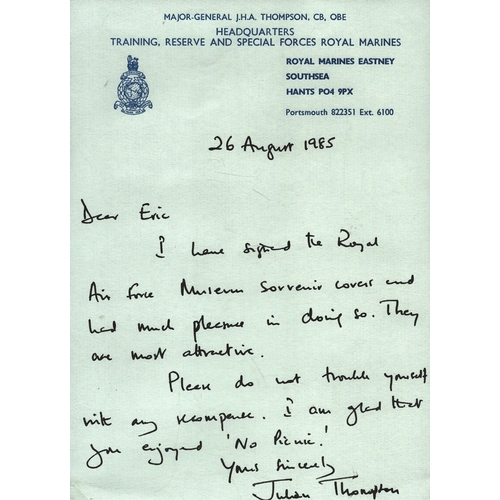 MAJOR-GENERAL J.H.A. THOMPSON, CB, OBE
HEADQUARTERS
TRAINING, RESERVE AND SPECIAL FORCES ROYAL MARINES
ROYAL MARINES EASTNEY
SOUTHSEA
HANTS PO4 9PX
Portsmouth 822351 Ext. 6100
26 August 1985
Dear Eric
I have signed the Royal
Air Force Museum Souvenir covers and
had much pleasure in doing so. They
are most attractive.
Please do not trouble yourself
with any recompense. I am glad that
you enjoyed 'No Picnic'.
Yours sincerely
Julian Thompson